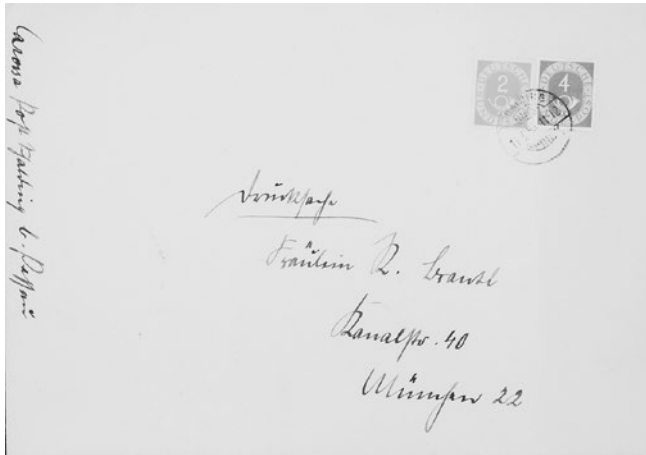 Carossa Post Schalding b. Passau
2 4
DEUTSCHE
Drucksache
Fräulein K. Brantl
Kanalstr. 40
München 22